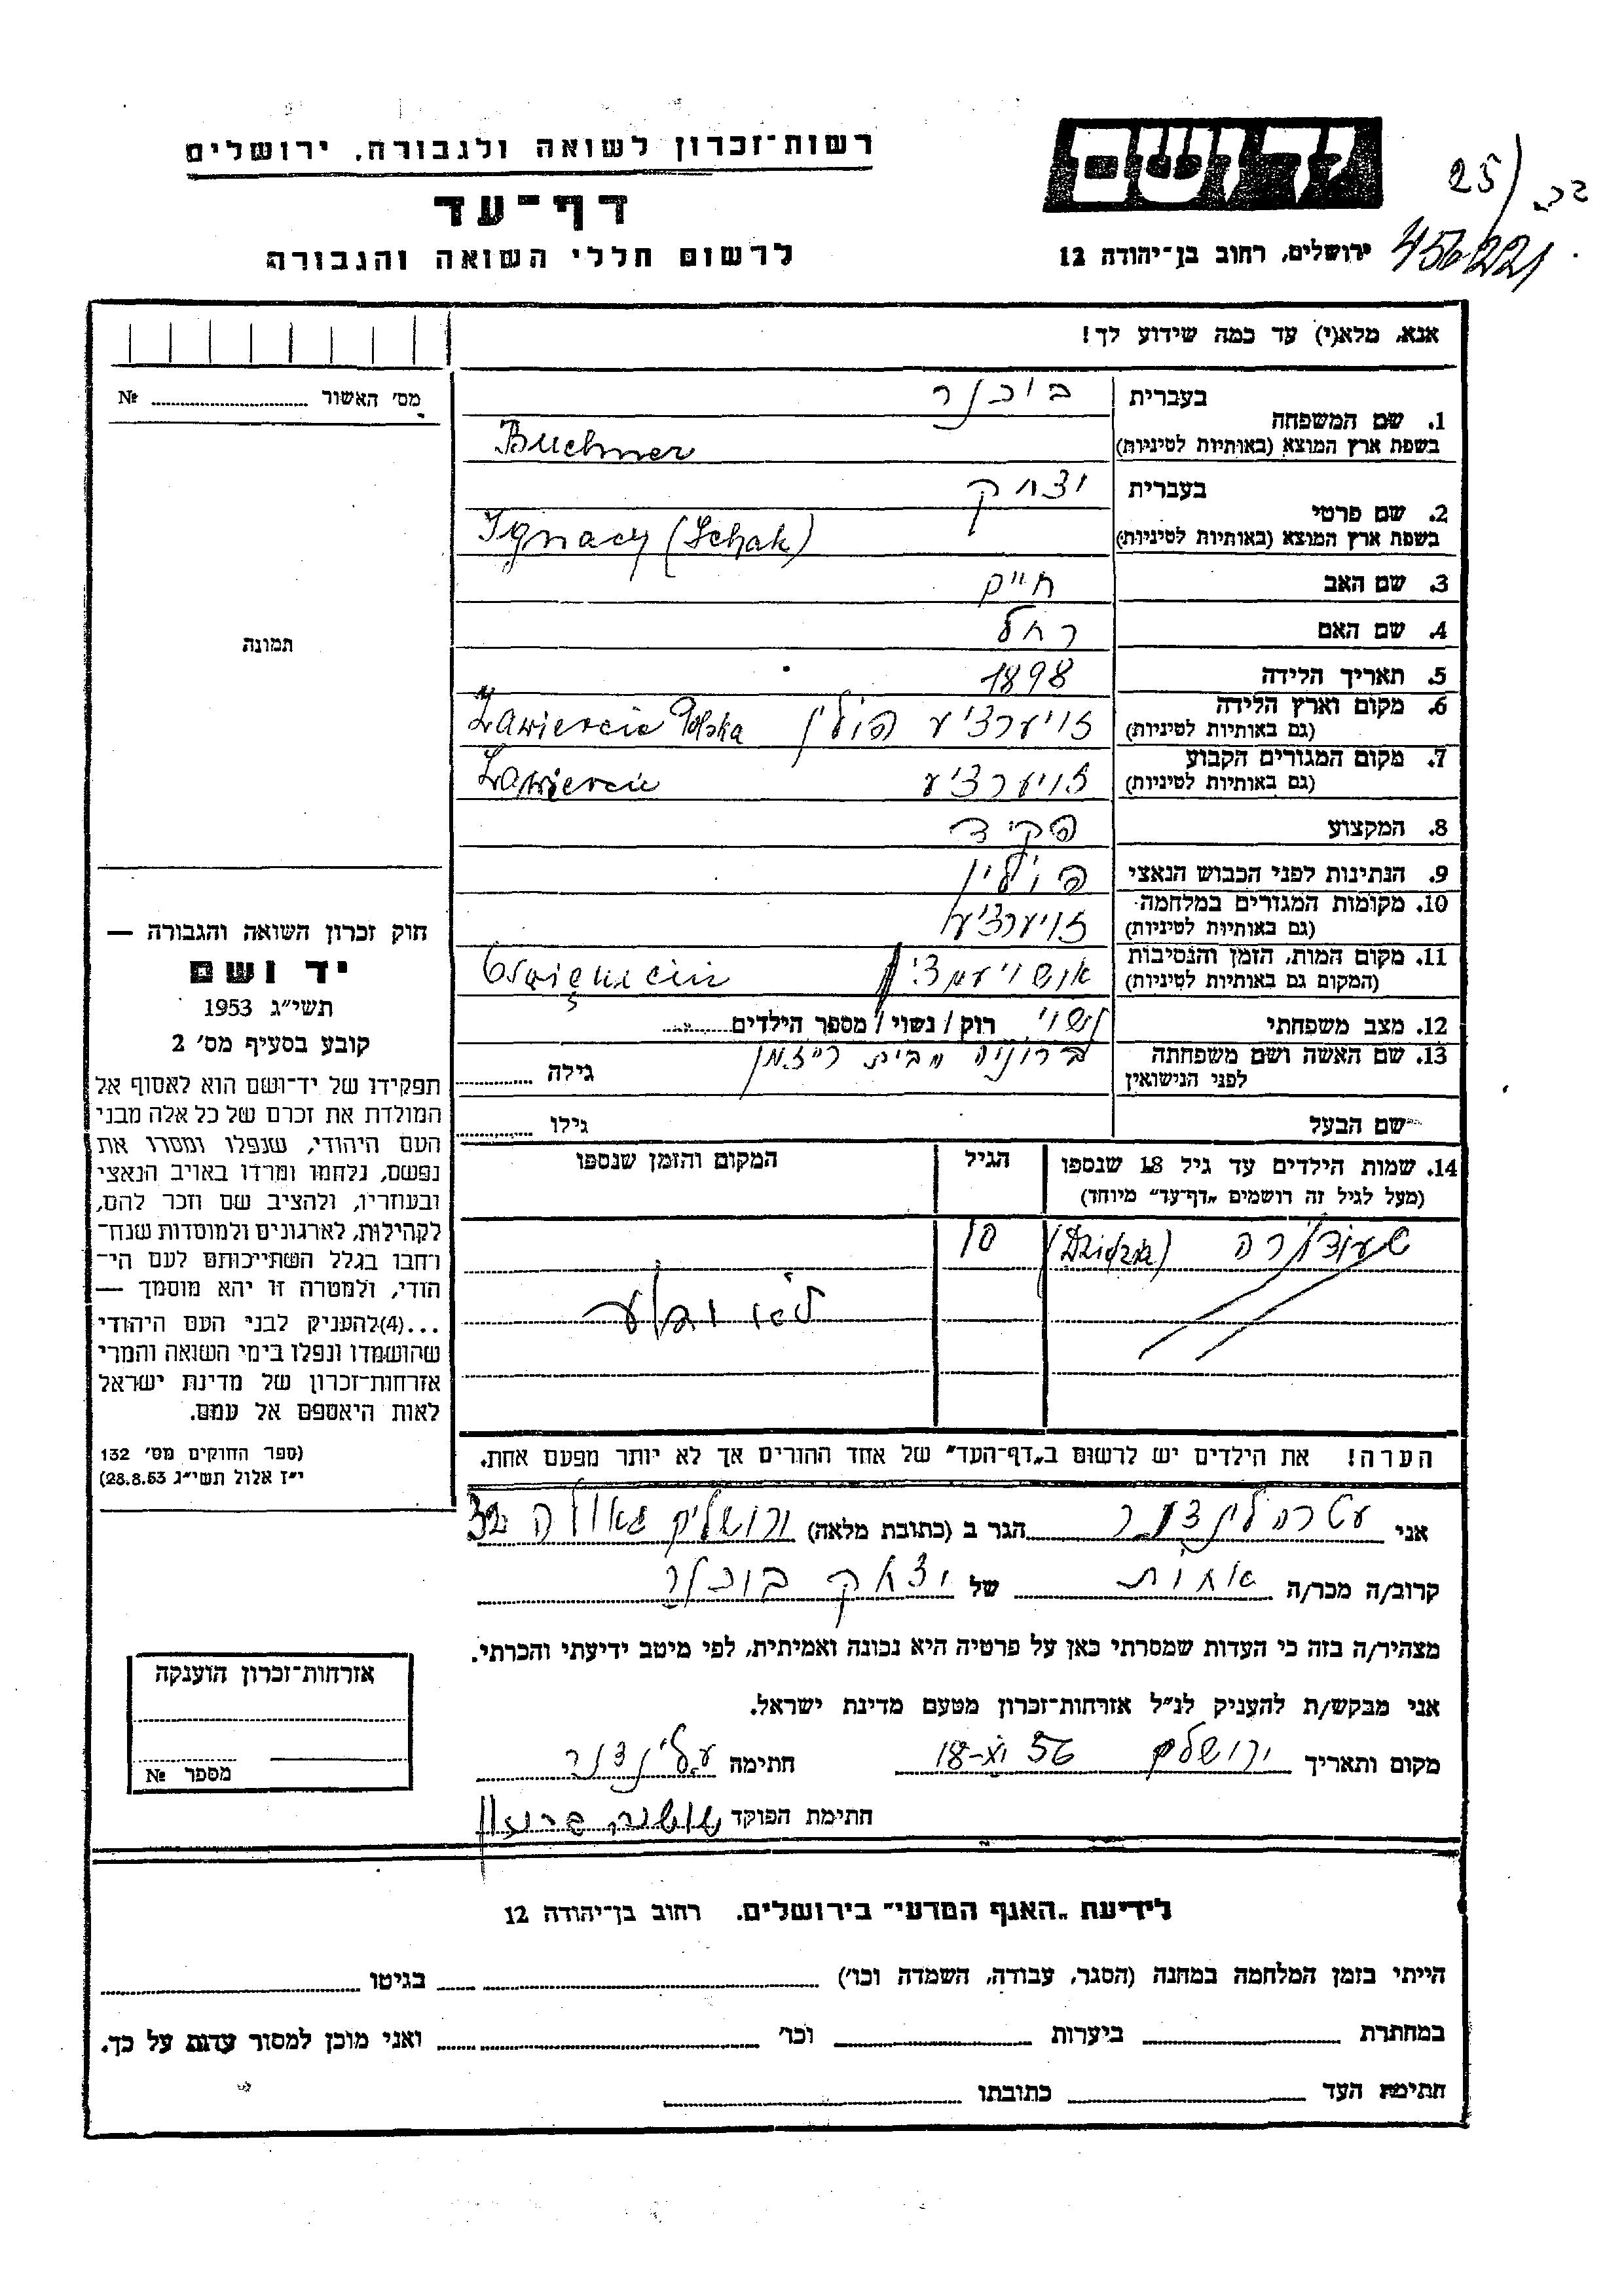 רשות־זכרון לשואה ולגבורה, ירושלים
דף־עד
לרשום חללי השואה והגבורה
יד ושם
ירושלים, רחוב בן־יהודה 12
25/
456221
אנא, מלא(י) עד כמה שידוע לך!
מס' האשור № 
תמונה
חוק זכרון השואה והגבורה —
יד ושם
תשי״ג 1953
קובע בסעיף מס' 2
תפקידו של יד־ושם הוא לאסוף אל
המולדת את זכרם של כל אלה מבני
העם היהודי, שנפלו ומסרו את
נפשם, נלחמו ומרדו באויב הנאצי
ובעוזריו, ולהציב שם וזכר להם,
לקהילות, לארגונים ולמוסדות שנח־
רחבו בגלל השתייכותם לעם הי־
הודי, ולמטרה זו יהא מוסמך —
...(4)להעניק לבני העם היהודי
שהושמדו ונפלו בימי השואה והמרי
אזרחות־זכרון של מדינת ישראל
לאות היאספם אל עמם.
(ספר החוקים מס' 132
י״ז אלול תשי״ג 28.8.53)
1. שם המשפחה
בעברית בוכנר
בשפת ארץ המוצא (באותיות לטיניות) Buchner
2. שם פרטי
בעברית יצחק
בשפת ארץ המוצא (באותיות לטיניות) Ignacy (Ichak)
3. שם האב חיים
4. שם האם רחל
5. תאריך הלידה 1898
6. מקום וארץ הלידה (גם באותיות לטיניות) זויערציע פולין Zawiercie Polska
7. מקום המגורים הקבוע (גם באותיות לטיניות) זויערציע Zawiercie
8. המקצוע פקיד
9. הנתינות לפני הכבוש הנאצי פולין
10. מקומות המגורים במלחמה (גם באותיות לטיניות) זויערציע
11. מקום המות, הזמן והנסיבות (המקום גם באותיות לטיניות) אושויעמצי
12. מצב משפחתי נשוי רוק / נשוי / מספר הילדים
13. שם האשה ושם משפחתה לפני הנישואין ברוניה מבית רייזמן גילה
שם הבעל גילו
14. שמות הילדים עד גיל 18 שנספו הגיל המקום והזמן שנספו
(מעל לגיל זה רושמים „דף־עד״ מיוחד)
(Dzidzia) 10
לא ובלע
הערה! את הילדים יש לרשום ב„דף־העד״ של אחד ההורים אך לא יותר מפעם אחת.
אני עטרה לינצנר הגר ב (כתובת מלאה) ירושלים גאולה
קרוב/ה מכר/ה אחות של יצחק בוכנר
מצהיר/ה בזה כי העדות שמסרתי כאן על פרטיה היא נכונה ואמיתית, לפי מיטב ידיעתי והכרתי.
אני מבקש/ת להעניק לנ״ל אזרחות־זכרון מטעם מדינת ישראל.
מקום ותאריך ירושלים 18-XI 56 חתימה ע.לינצנר
חתימת הפוקד שושנה
אזרחות־זכרון הוענקה
מספר №
לידיעת „האגף המדעי״ בירושלים. רחוב בן־יהודה 12
הייתי בזמן המלחמה במחנה (הסגר, עבודה, השמדה וכו') בגיטו
במחתרת ביערות וכו' ואני מוכן למסור עדות על כך.
חתימת העד כתובתו